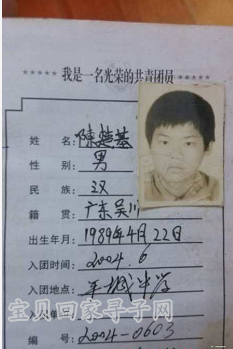 ***** 我是一名光荣的共青团员 *****
姓 名:陈楚基
性 别:男
民 族:汉
籍 贯:广东吴川
出生年月:1989年4月22日
入团时间:2004.6
入团地点:平城中学
入
编 号:2004-0603
宝贝回家寻子网